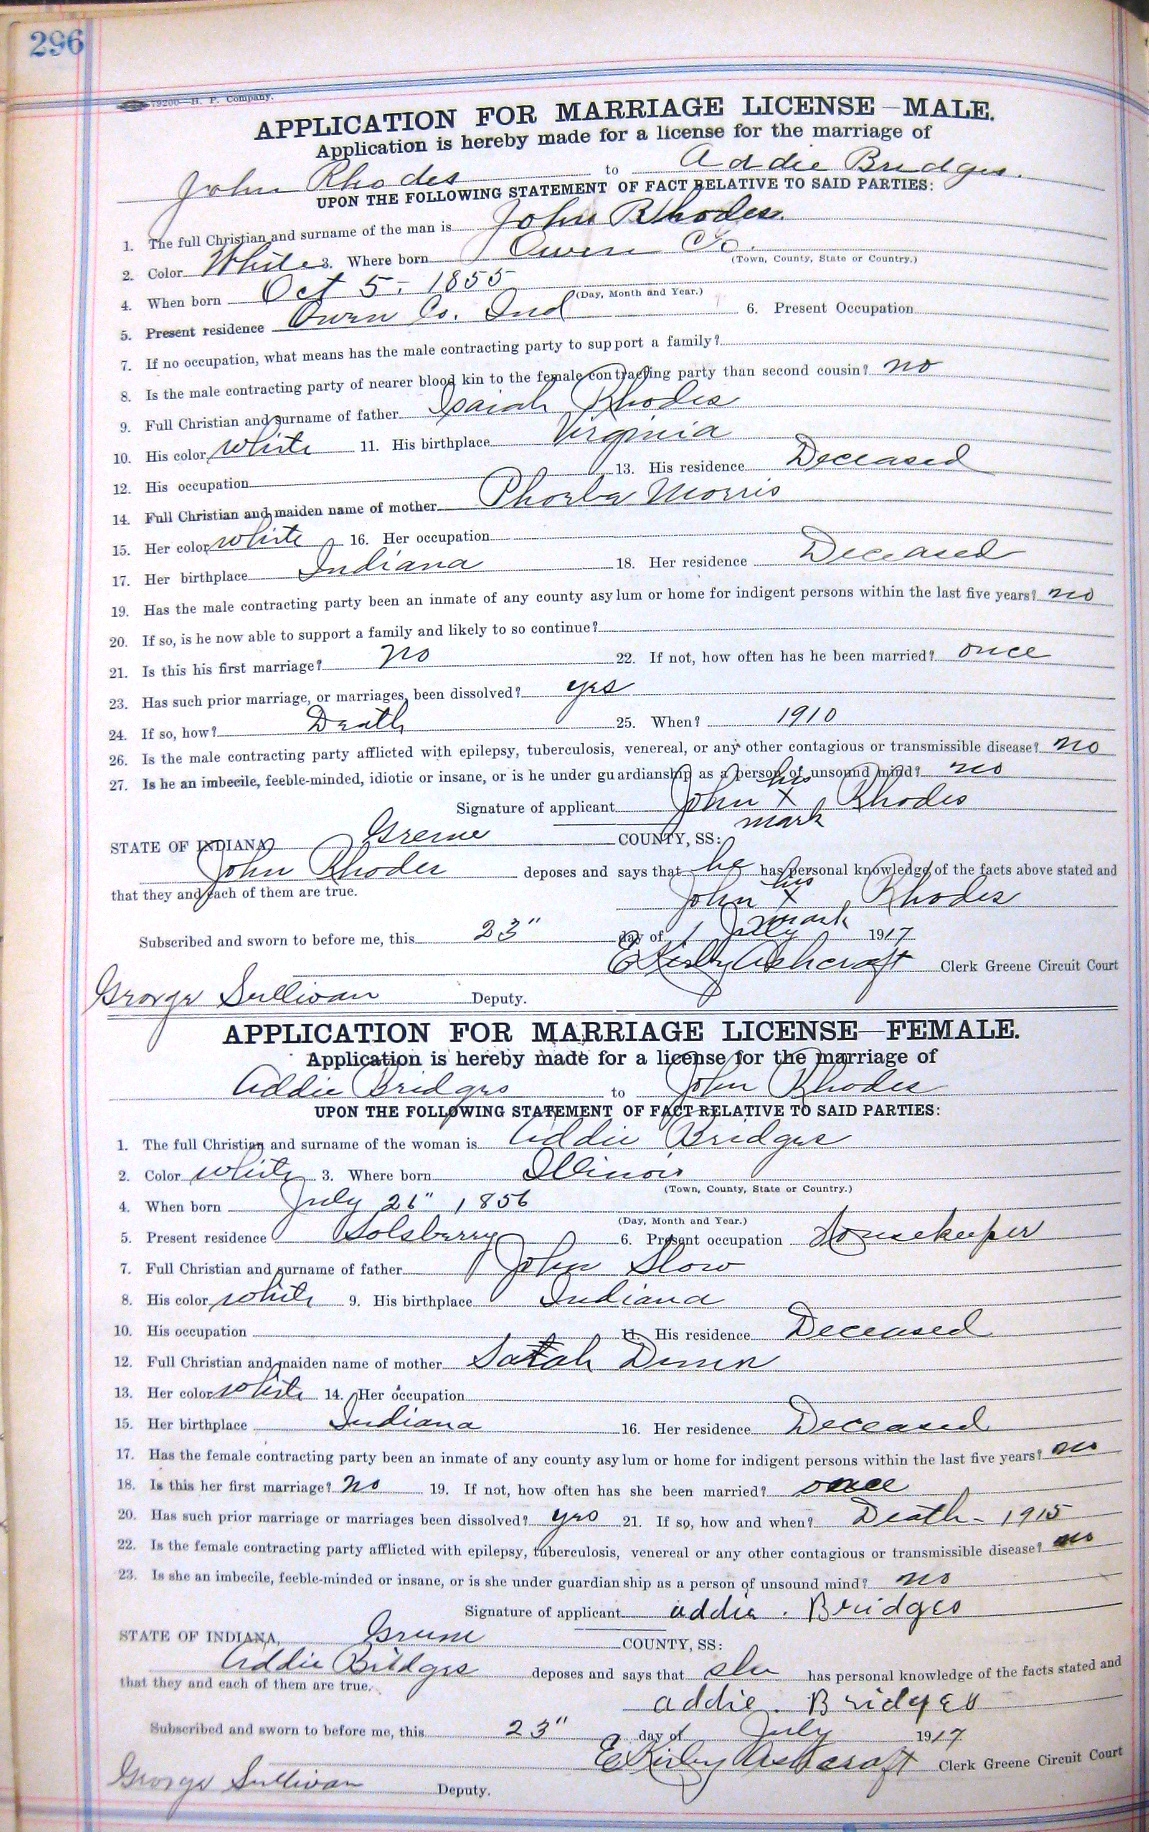 296
79200—H. P. Company.
APPLICATION FOR MARRIAGE LICENSE—MALE.
Application is hereby made for a license for the marriage of
John Rhodes to Addie Bridges.
UPON THE FOLLOWING STATEMENT OF FACT RELATIVE TO SAID PARTIES:
1. The full Christian and surname of the man is John Rhodes.
2. Color White 3. Where born Owen Co.
(Town, County, State or Country.)
4. When born Oct 5, 1855
(Day, Month and Year.)
5. Present residence Owen Co. Ind 6. Present Occupation
7. If no occupation, what means has the male contracting party to support a family?
8. Is the male contracting party of nearer blood kin to the female contracting party than second cousin? no
9. Full Christian and surname of father Isaiah Rhodes
10. His color white 11. His birthplace Virginia
12. His occupation 13. His residence Deceased
14. Full Christian and maiden name of mother Phoeba Morris
15. Her color white 16. Her occupation
17. Her birthplace Indiana 18. Her residence Deceased
19. Has the male contracting party been an inmate of any county asylum or home for indigent persons within the last five years? no
20. If so, is he now able to support a family and likely to so continue?
21. Is this his first marriage? no 22. If not, how often has he been married? once
23. Has such prior marriage, or marriages, been dissolved? yes
24. If so, how? Death 25. When? 1910
26. Is the male contracting party afflicted with epilepsy, tuberculosis, venereal, or any other contagious or transmissible disease? no
27. Is he an imbecile, feeble-minded, idiotic or insane, or is he under guardianship as a person of unsound mind? no
his
Signature of applicant John X Rhodes
mark
STATE OF INDIANA, Greene COUNTY, SS:
John Rhodes deposes and says that he has personal knowledge of the facts above stated and
that they and each of them are true.
his
John X Rhodes
mark
Subscribed and sworn to before me, this 23" day of July 1917
E Kirby Ashcraft Clerk Greene Circuit Court
George Sullivan Deputy.
APPLICATION FOR MARRIAGE LICENSE—FEMALE.
Application is hereby made for a license for the marriage of
Addie Bridges to John Rhodes
UPON THE FOLLOWING STATEMENT OF FACT RELATIVE TO SAID PARTIES:
1. The full Christian and surname of the woman is Addie Bridges
2. Color white 3. Where born Illinois
(Town, County, State or Country.)
4. When born July 26" 1856
(Day, Month and Year.)
5. Present residence Solsberry 6. Present occupation Housekeeper
7. Full Christian and surname of father John Slow
8. His color white 9. His birthplace Indiana
10. His occupation 11. His residence Deceased
12. Full Christian and maiden name of mother Satah
13. Her color white 14. Her occupation
15. Her birthplace Indiana 16. Her residence Deceased
17. Has the female contracting party been an inmate of any county asylum or home for indigent persons within the last five years? no
18. Is this her first marriage? no 19. If not, how often has she been married? once
20. Has such prior marriage or marriages been dissolved? yes 21. If so, how and when? Death - 1915
22. Is the female contracting party afflicted with epilepsy, tuberculosis, venereal or any other contagious or transmissible disease? no
23. Is she an imbecile, feeble-minded or insane, or is she under guardianship as a person of unsound mind? no
Signature of applicant addie. Bridges
STATE OF INDIANA, Greene COUNTY, SS:
Addie Bridges deposes and says that she has personal knowledge of the facts stated and
that they and each of them are true.
addie. Bridges
Subscribed and sworn to before me, this 23" day of July 1917
E Kirby Ashcraft Clerk Greene Circuit Court
George Sullivan Deputy.